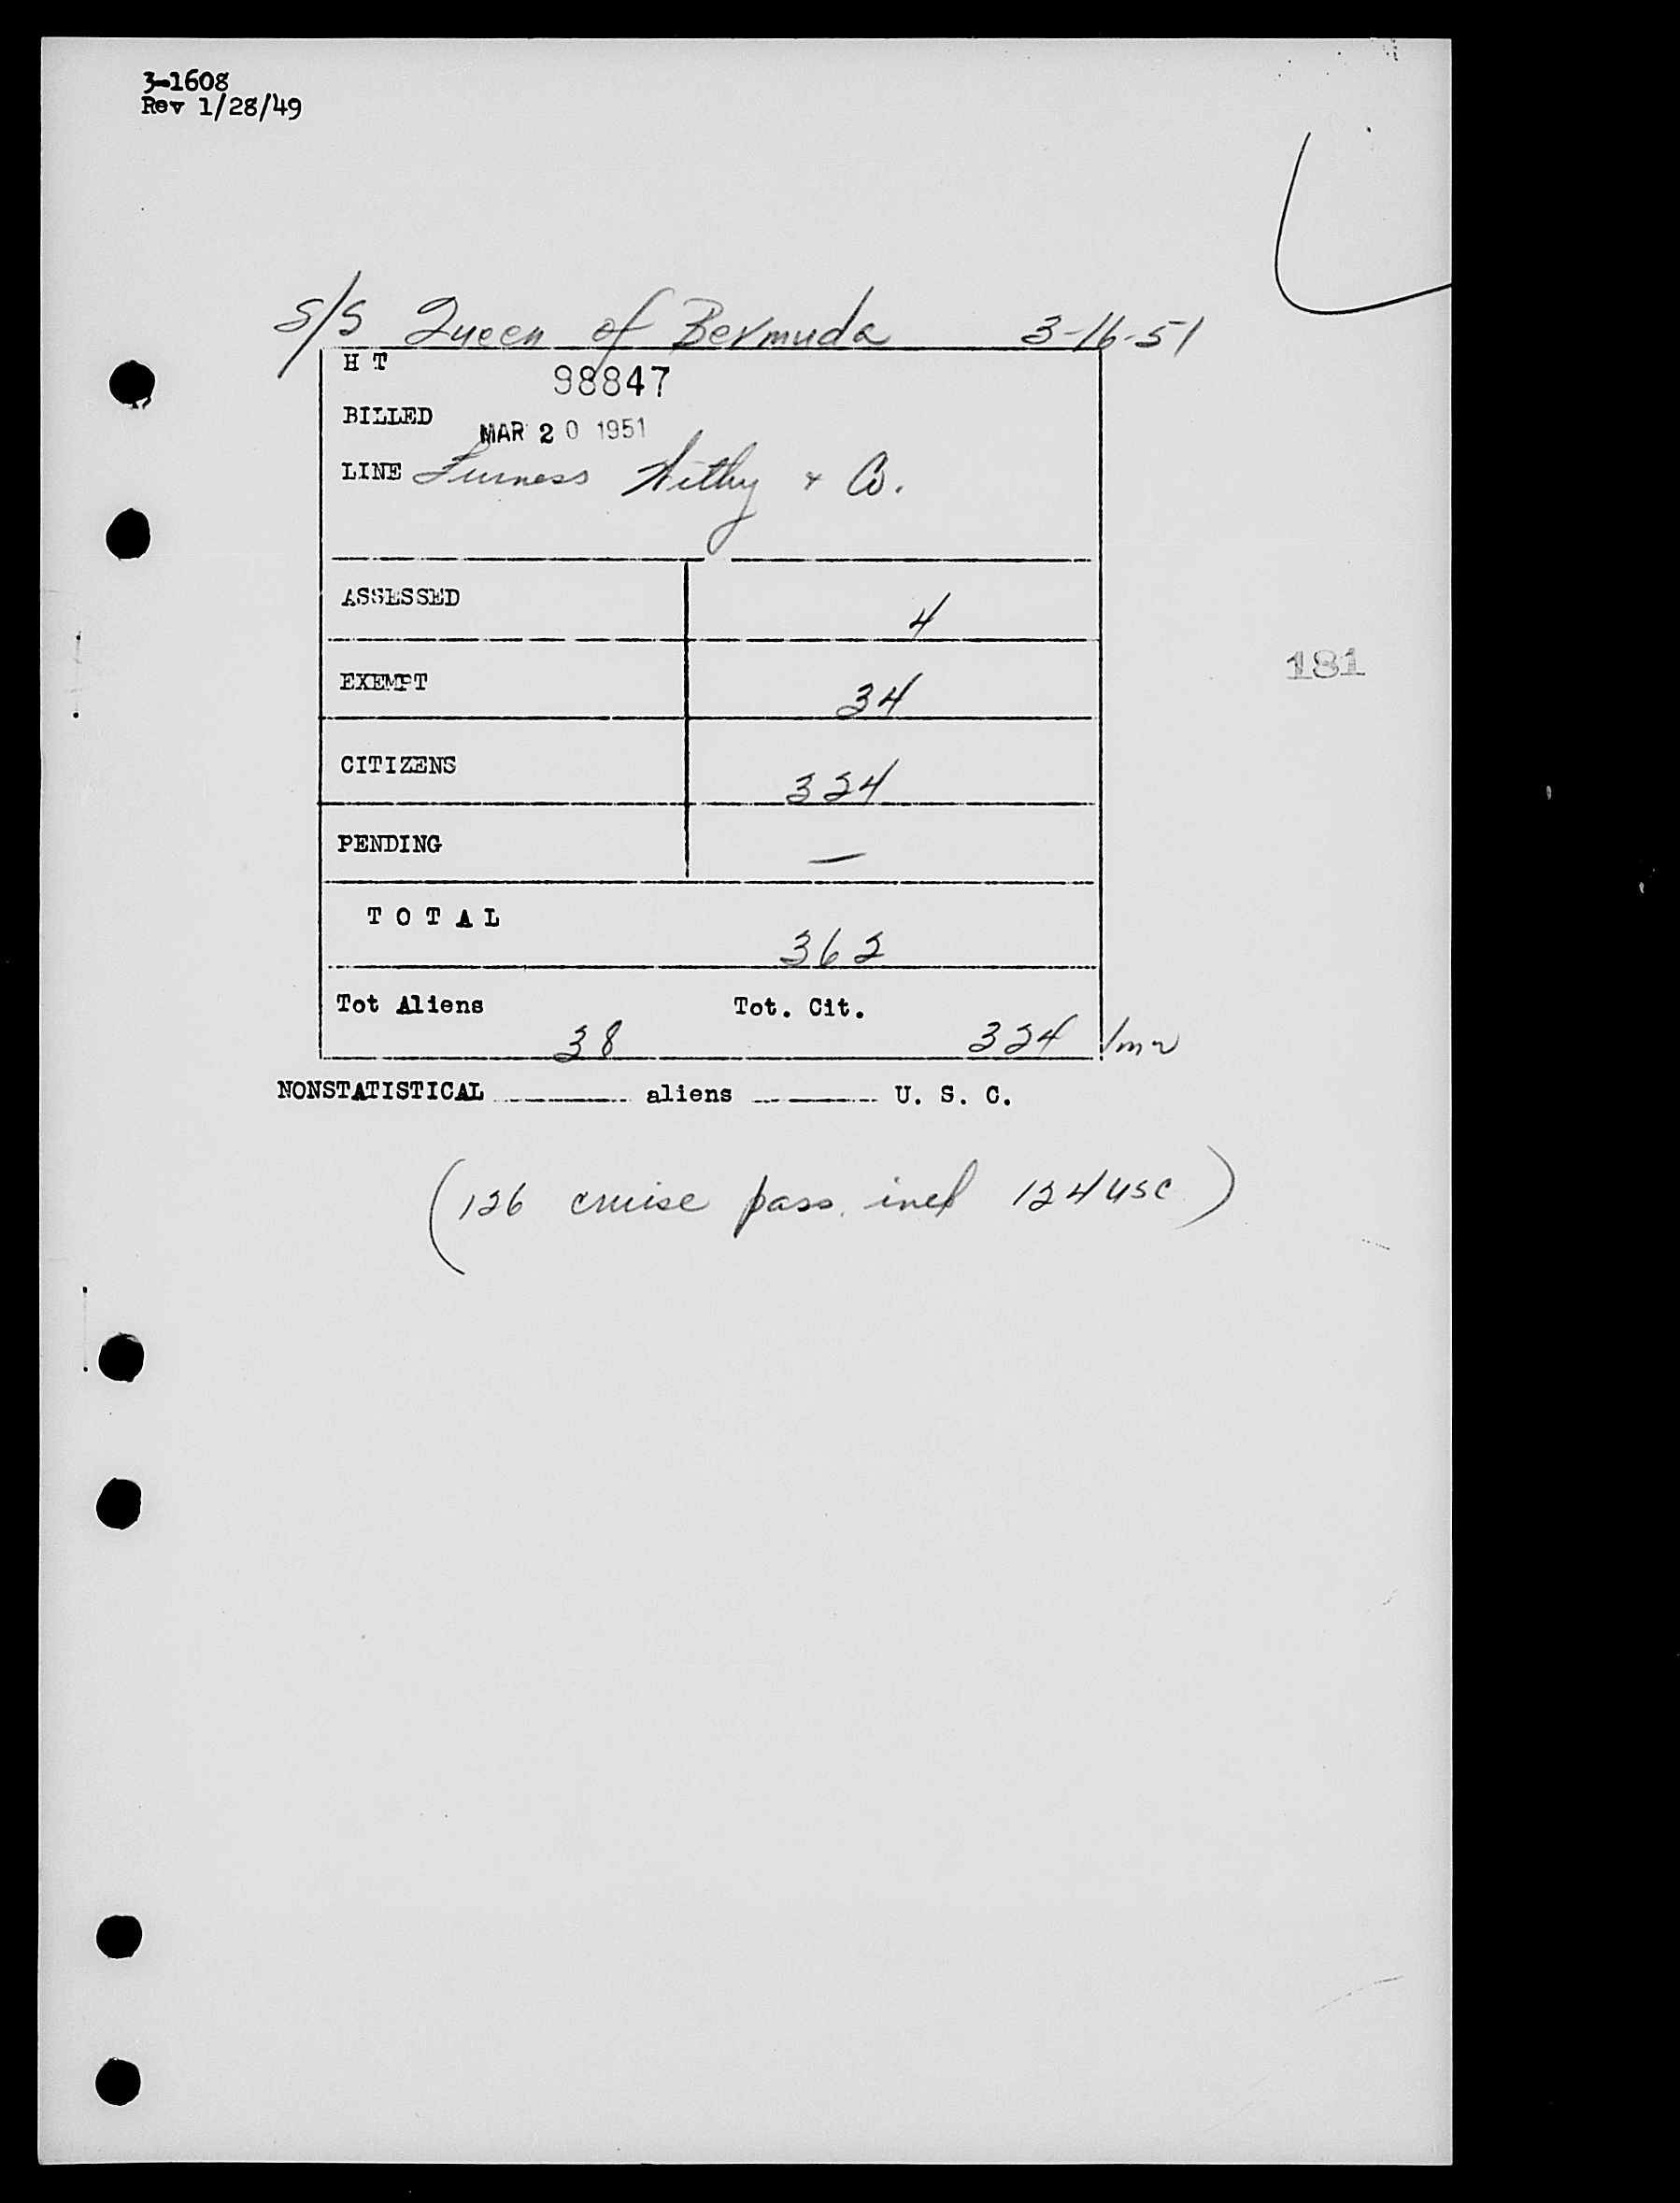 3-1608
Rev 1/28/49
S/S Queen of Bermuda 3-16-51
H T 98847
BILLED MAR 20 1951
LINE Furness Withy & Co.
ASSESSED 4
181
EXEMPT 34
CITIZENS 324
PENDING —
T O T A L 362
Tot Aliens 38 Tot. Cit. 324
NONSTATISTICAL aliens U. S. C.
(126 cruise pass. incl 124 USC)